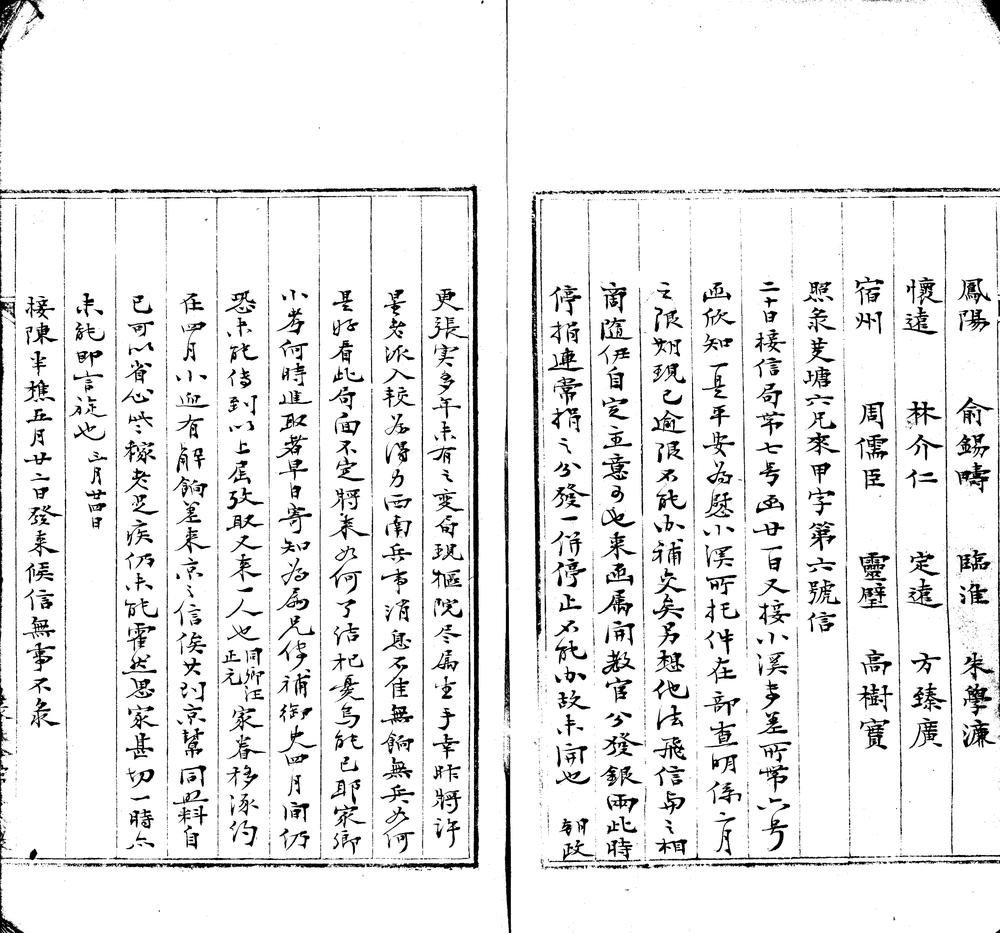 鳳陽　俞錫疇　臨淮　朱學濂
懷遠　林介仁　定遠　方臻廣
宿州　周儒臣　靈璧　高樹寶
照彔芰塘六兄來甲字第六號信
二十日接信局第七号函廿一日又接小溪專差所帶六号
函欣知一是平安為慰小溟所托件在部查明係六月
之限期現已逾限不能办補交矣另想他法飛信与之相
商隨伊自定主意可也來函属開教官分發銀兩此時
停捐連常捐之分發一併停止不能办故未開也　朝政
更張实多年未有之变局現樞院尽属生手幸昨將許
星老派入較為得力西南兵事消息不佳無餉無兵如何
是好看此局面不定將來如何了結杞憂烏能已耶家卿
小考何時進取者早日寄知為屬兄俸補御史四月间仍
恐未能傳到以上屈孜取又来一人也同鄉汪正元家眷移涿約
在四月小迎有解餉差来京之信俟其到京幫同照料自
已可以省心然稼老足疾仍未能霍然思家甚切一時亦
未能即言旋也　三月廿四日
接陳半樵五月廿二日發来候信無事不彔